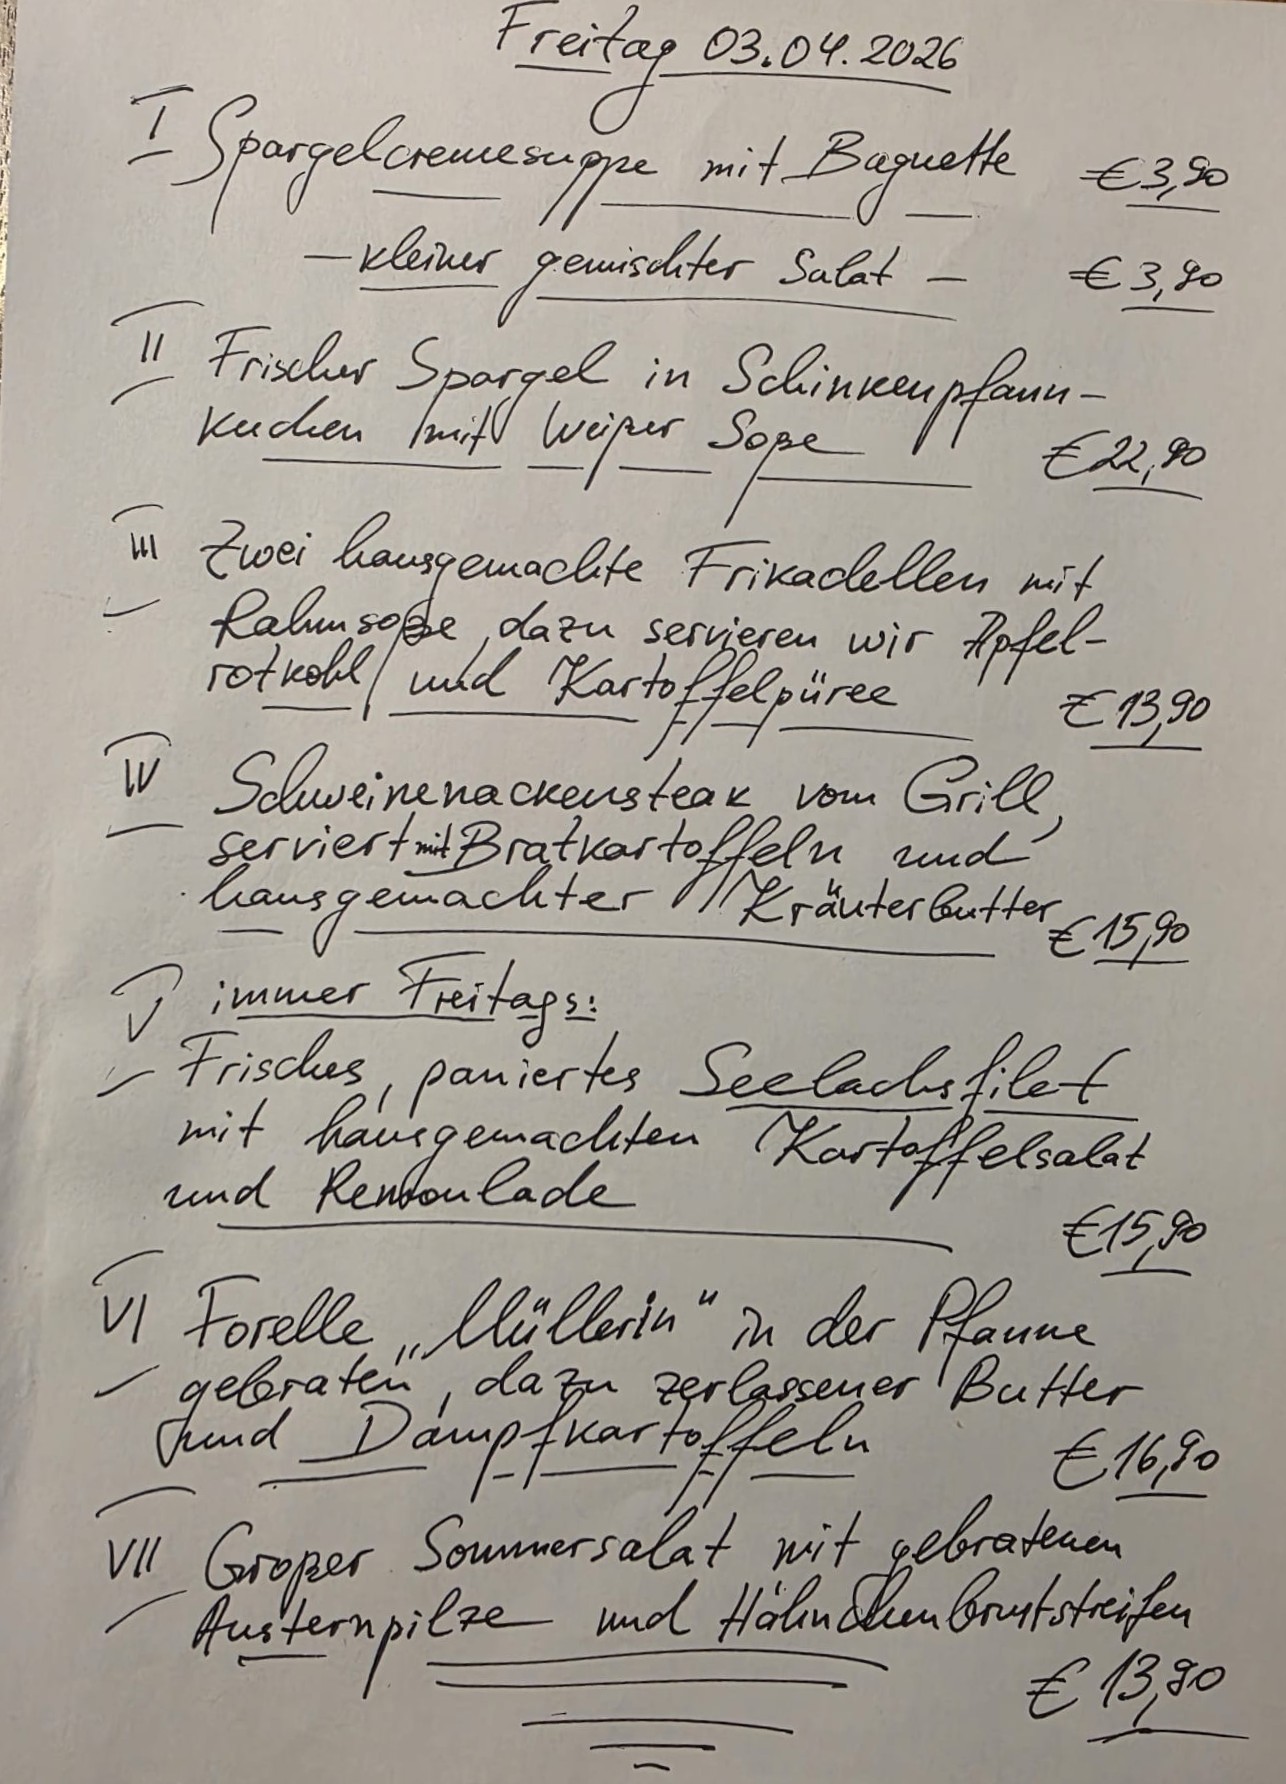 Freitag 03.04.2026
I Spargelcremesuppe mit Baguette €3,90
– kleiner gemischter Salat – €3,90
II Frischer Spargel in Schinkenpfann-
kuchen mit weißer Soße €22,90
III Zwei hausgemachte Frikadellen mit
Rahmsoße, dazu servieren wir Apfel-
rotkohl und Kartoffelpüree €13,90
IV Schweinenackensteak vom Grill,
serviert mit Bratkartoffeln und
hausgemachter Kräuterbutter €15,90
V immer Freitags:
Frisches, paniertes Seelachsfilet
mit hausgemachten Kartoffelsalat
und Remoulade €15,90
VI Forelle „Müllerin“ in der Pfanne
gebraten, dazu zerlassener Butter
und Dampfkartoffeln €16,90
VII Großer Sommersalat mit gebratenen
Austernpilze und Hähnchenbruststreifen
€13,90